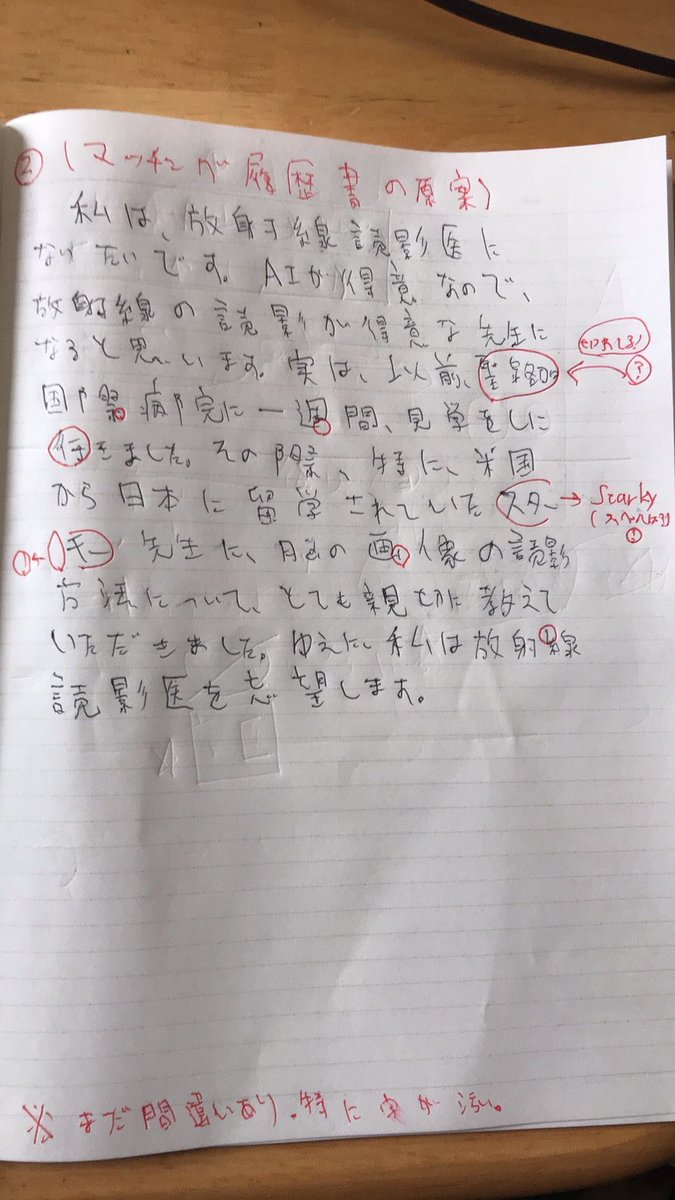 ② (マッチング履歴書の原案)
私は、放射線読影医に
なりたいです。AIが得意なので、
放射線の読影が得意な先生に
なると思います。実は、以前、聖路加
?
国際病院に一週間、見学をしに
行きました。その際、特に、米国
から日本に留学されていたスター → Starky
キー先生に、脳の画像の読影
方法について、とても親切に教えて
いただきました。ゆえに、私は放射線
読影医を志望します。
※まだ間違いあり。特に字が汚い。